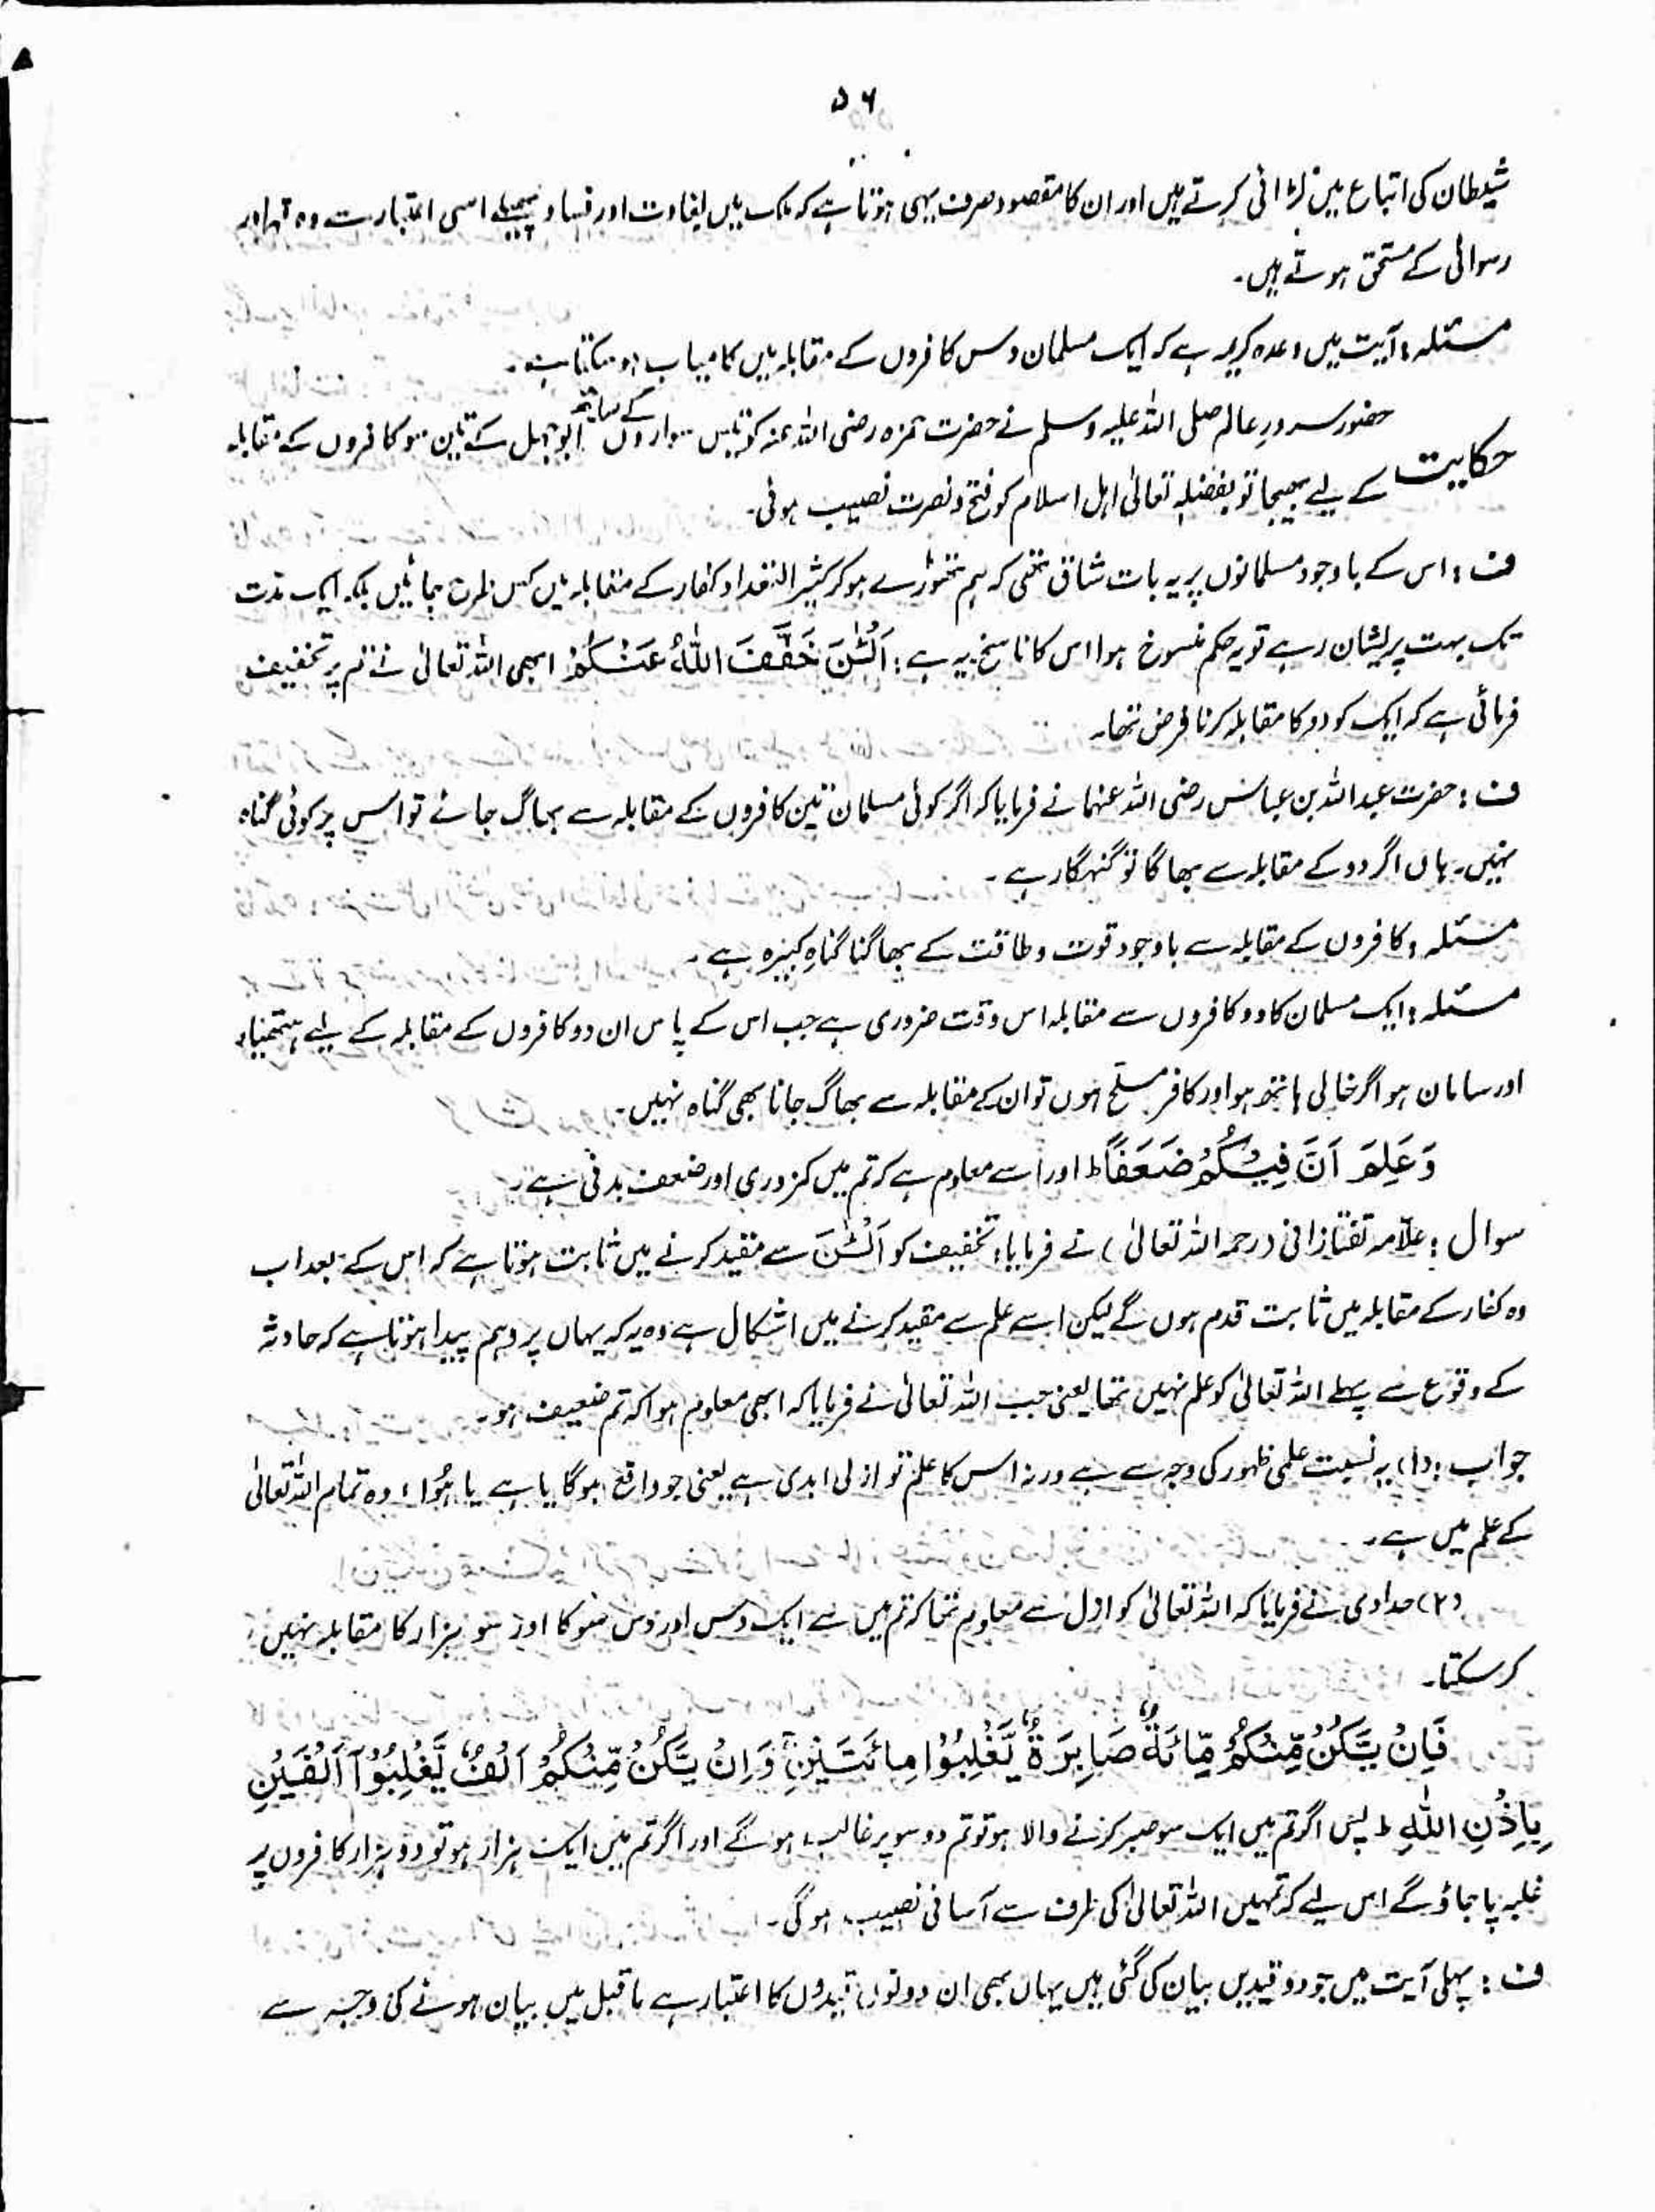 ۵۶
شیطان کی اتباع میں لڑائی کرتے ہیں اور ان کا مقصود صرف یہی ہوتا ہے کہ ملک میں بغاوت اور فساد پھیلے اسی اعتبار سے وہ قہر اور
رسوائی کے مستحق ہوتے ہیں۔
مسئلہ : آیت میں وعدہ کریمہ ہے کہ ایک مسلمان دس کافروں کے مقابلہ میں کامیاب ہو سکتا ہے۔
حضور سرور عالم صلی اللہ علیہ وسلم نے حضرت حمزہ رضی اللہ عنہ کو تیس سواروں کے ساتھ ابوجہل کے تین سو کافروں کے مقابلہ
حکایت کے لیے بھیجا تو بفضلہٖ تعالیٰ اہل اسلام کو فتح و نصرت نصیب ہوئی۔
ف : اس کے باوجود مسلمانوں پر یہ بات شاق تھی کہ ہم تھوڑے ہو کر کثیر التعداد کفار کے مقابلہ میں کس طرح جائیں بلکہ ایک مدت
تک بہت پریشان رہے تو یہ حکم منسوخ ہوا اس کا ناسخ یہ ہے : اَلْئٰنَ خَفَّفَ اللّٰهُ عَنْكُمْ ابھی اللہ تعالیٰ نے تم پر تخفیف
فرمائی ہے کہ ایک کو دو کا مقابلہ کرنا فرض تھا۔
ف : حضرت عبداللہ بن عباس رضی اللہ عنہما نے فرمایا کہ اگر کوئی مسلمان تین کافروں کے مقابلہ سے بھاگ جائے تو اس پر کوئی گناہ
نہیں۔ ہاں اگر دو کے مقابلہ سے بھاگا تو گنہگار ہے۔
مسئلہ : کافروں کے مقابلہ سے باوجود قوت و طاقت کے بھاگنا گناہِ کبیرہ ہے۔
مسئلہ : ایک مسلمان کا دو کافروں سے مقابلہ اس وقت ضروری ہے جب اس کے پاس ان دو کافروں کے مقابلہ کے لیے ہتھیار
اور سامان ہو اگر خالی ہاتھ ہو اور کافر مسلح ہوں تو ان کے مقابلہ سے بھاگ جانا بھی گناہ نہیں۔
وَعَلِمَ اَنَّ فِيْكُمْ ضَعَفًا ط اور اسے معلوم ہے کہ تم میں کمزوری اور ضعف بدنی ہے۔
سوال : علّامہ تفتازانی (رحمہ اللہ تعالیٰ) نے فرمایا : تخفیف کو اَلْئٰنَ سے مقید کرنے میں ثابت ہوتا ہے کہ اس کے بعد اب
وہ کفار کے مقابلہ میں ثابت قدم ہوں گے لیکن اسے علم سے مقید کرنے میں اشکال ہے وہ یہ کہ یہاں پر وہم پیدا ہوتا ہے کہ حادثہ
کے وقوع سے پہلے اللہ تعالیٰ کو علم نہیں تھا یعنی جب اللہ تعالیٰ نے فرمایا کہ ابھی معلوم ہوا کہ تم ضعیف ہو۔
جواب : (۱) یہ نسبت علمی ظہور کی وجہ سے ہے ورنہ اس کا علم تو ازلی ابدی ہے یعنی جو واقع ہوگا یا ہے یا ہُوا ، وہ تمام اللہ تعالیٰ
کے علم میں ہے۔
(۲) حدادی نے فرمایا کہ اللہ تعالیٰ کو ازل سے معلوم تھا کہ تم میں سے ایک دس اور دس سو کا اور سو ہزار کا مقابلہ نہیں
کر سکتا۔
فَاِنْ يَّكُنْ مِّنْكُمْ مِّائَةٌ صَابِرَةٌ يَّغْلِبُوْا مِائَتَيْنِ ۚ وَاِنْ يَّكُنْ مِّنْكُمْ اَلْفٌ يَّغْلِبُوْٓا اَلْفَيْنِ
بِاِذْنِ اللّٰهِ ط پس اگر تم میں ایک سو صبر کرنے والا ہو تو تم دو سو پر غالب ہو گے اور اگر تم میں ایک ہزار ہو تو دو ہزار کافروں پر
غلبہ پا جاؤ گے اس لیے کہ تمہیں اللہ تعالیٰ کی طرف سے آسانی نصیب ہوگی۔
ف : پہلی آیت میں جو دو قیدیں بیان کی گئی ہیں یہاں بھی ان دونوں قیدوں کا اعتبار ہے ماقبل میں بیان ہونے کی وجہ سے